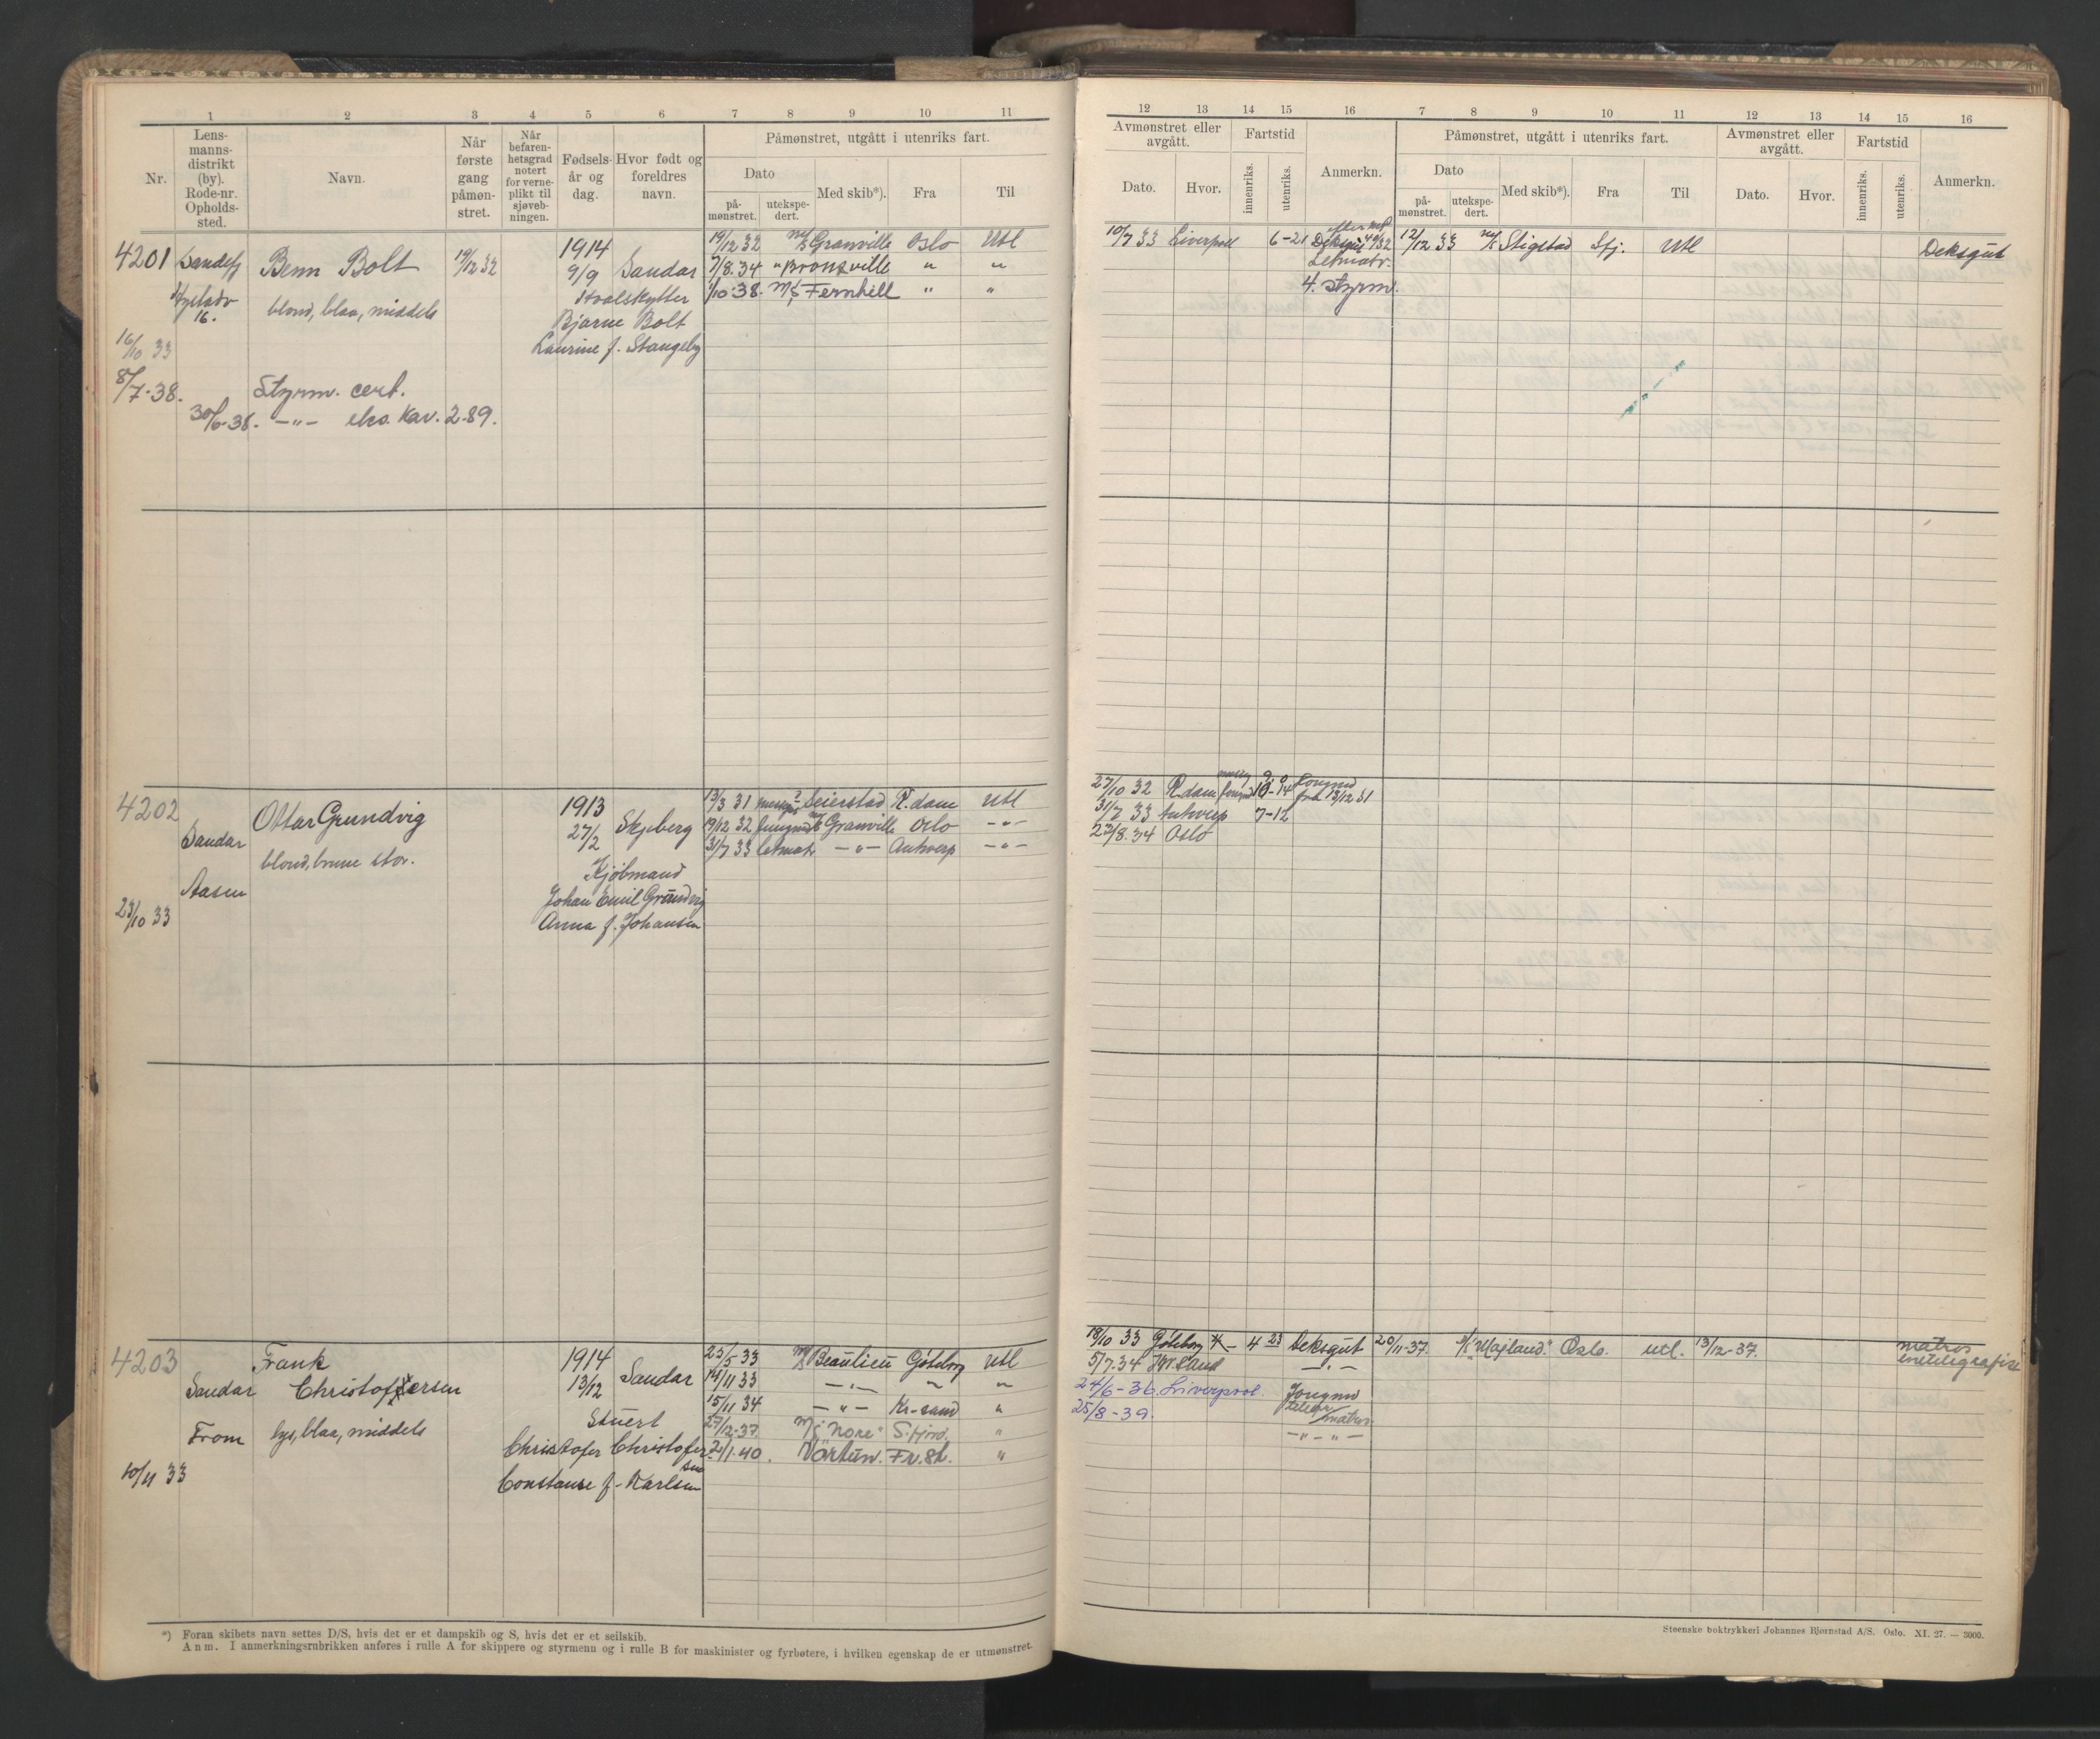 1 2 3 4 5 6 7 8 9 10 11
Nr.
Lens-
manns-
distrikt
(by).
Rode-nr.
Opholds-
sted.
Navn.
Når
første
gang
påmøn-
stret.
Når
befaren-
hetsgrad
notert
for verne-
plikt til
sjøveb-
ningen.
Fødsels-
år og
dag.
Hvor født og
foreldres
navn.
Påmønstret, utgått i utenriks fart.
Dato
på-
mønstret.
utekspe-
dert.
Med skib*).
Fra
Til
4201 Sandefj Benn Bolt 19/12 32 1914 19/12 32 M/S Granville Oslo Utl
9/9 Sandar 7/8.34 " Bronxville " "
16. blond, blaa, middels Hvalskytter 1/10-38. M/S Fernhill " "
Bjarne Bolt
16/10 33 Laurine f. Stangeby
8/7-38. Styrm. cert.
30/6-38. -"- eks. kar. 2.89.
4202 Ottar Grundvig 1913 13/3 31 Seierstad R.dam Utl
Sandar 27/2 Skjeberg 19/12 32 Jungmd M/S Granville Oslo -"-
blond, brune stor. 31/7 33 Letmatr -"- Antwerp -"-
Kjøbmand
Aasen Johan Emil Grundvig
23/10 33 Anna f. Johansen
4203 Frank 1914 23/5 33 M/S Beaulieu Gøteborg Utl
Sandar Christofersen 13/12 Sandar 14/11 33 -"- " "
15/11 34 -"- Kr.sand "
From lys, blaa, middels Stuert 27/12-37 M/S "Nore" S.fjord. "
Christofer Christofer- 2/1.40. Vårtun. Fr.st. "
sen
10/11 33 Constanse f. Karlsen
*) Foran skibets navn settes D/S, hvis det er et dampskib og S, hvis det er et seilskib.
Anm. I anmerkningsrubrikken anføres i rulle A for skippere og styrmenn og i rulle B for maskinister og fyrbøtere, i hvilken egenskap de er utmønstret.
12 13 14 15 16 7 8 9 10 11 12 13 14 15 16
Avmønstret eller
avgått.
Dato.
Hvor.
Fartstid
innenriks.
utenriks.
Anmerkn.
Påmønstret, utgått i utenriks fart.
Dato
på-
mønstret.
utekspe-
dert.
Med skib*).
Fra
Til
Avmønstret eller
avgått.
Dato.
Hvor.
Fartstid
innenriks.
utenriks.
Anmerkn.
10/7 33 Liverpool 6-21 Deksgut 12/12 33 M/S Stigstad Sfj. Utl Deksgut
Letmatr.
4. styrm.
27/10 32 R.dam 10-14 Jungmd
fra 13/12 31
31/7 33 Antwerp 7-12
23/8.34 Oslo
18/10 33 Gøteborg 4 23 Deksgut 20/11-37. "Mojland." Oslo. utl. 13/12-37. matros
5/7.34 Kr.sand -"-
24/6-36. Liverpool. Jungmd
25/8-39. matros
-"-"-
Steenske boktrykkeri Johannes Bjørnstad A/S. Oslo. XI. 27. — 3000.